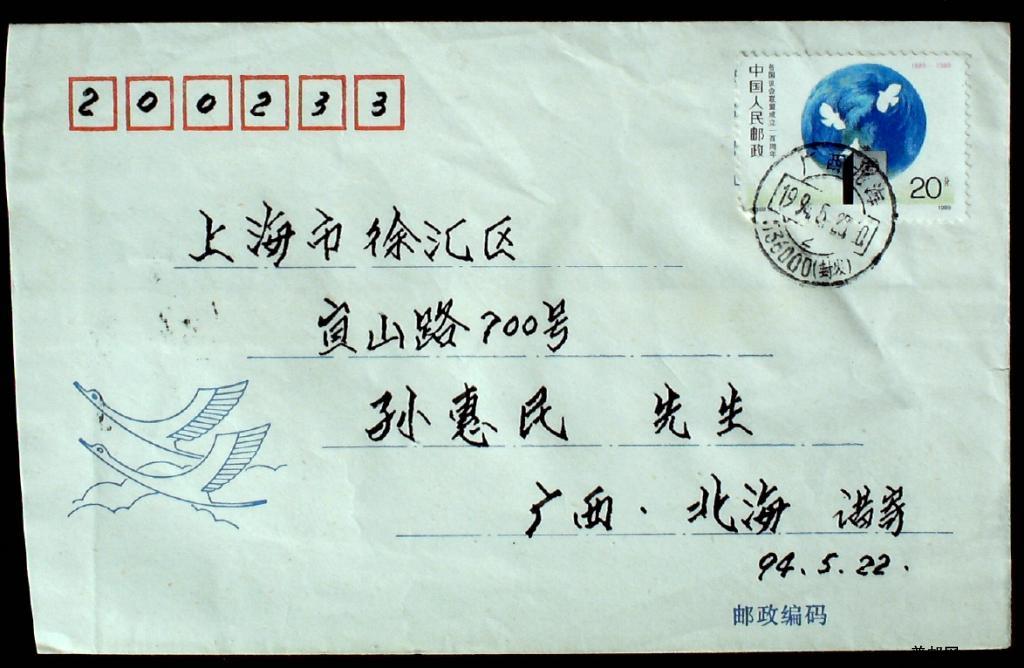 200233
中国人民邮政
各国议会联盟成立一百周年
1889-1989
20分
1989
广西北海
536000(封发)
上海市徐汇区
宜山路700号
孙惠民 先生
广西·北海 谌寄
94.5.22.
邮政编码